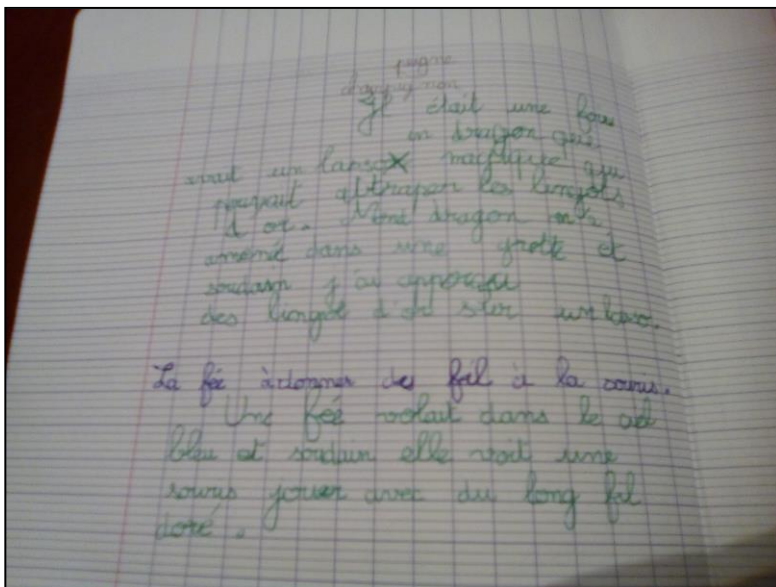 peigne
Il était une fois
un dragon qui
avait un lanso magique qui
pouvait attrapen les lingots
d'or. Mon dragon m'a
amené dans une grotte et
soudain j'ai apperçu
des lingot d'or sur un lasso.
La fée àdonner du fil à la souris.
Une feé volait dans le ciel
bleu et soudain elle voit une
souris jouer avec du long fil
doré.